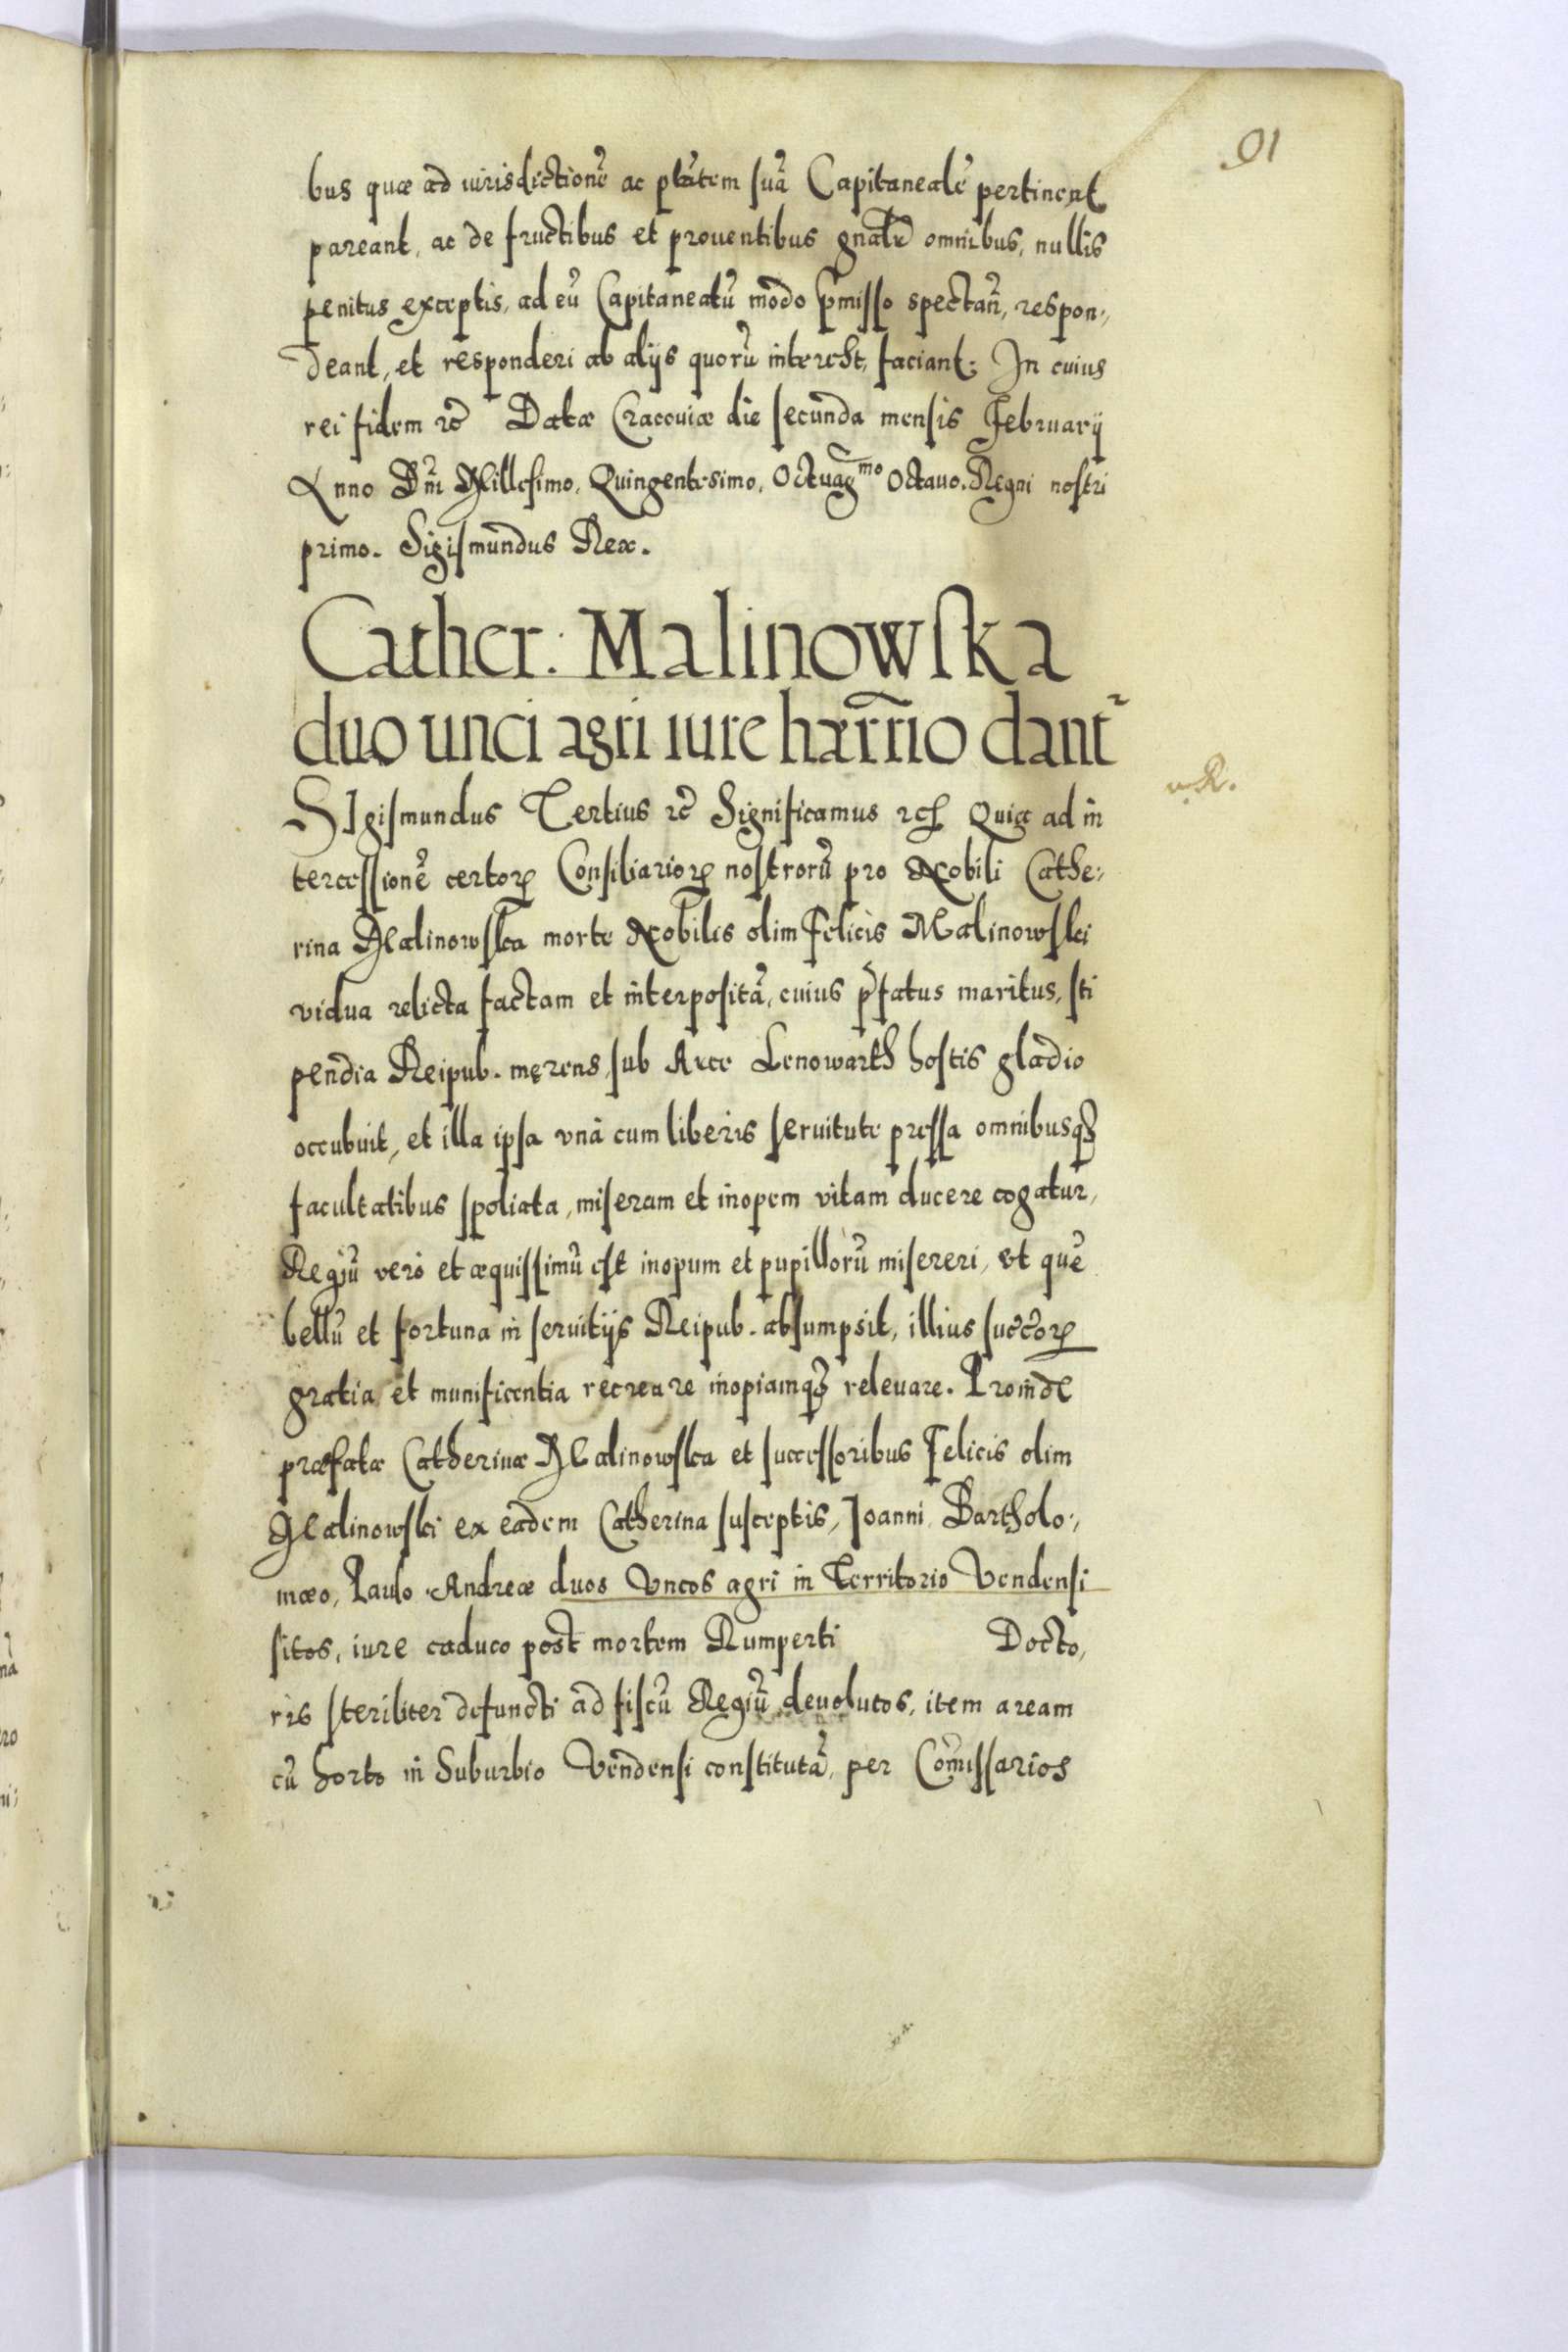 91
bus quæ ad iurisdictionẽ ac ptãtem suã Capitanealẽ pertinent
pareant, ac de fructibus et prouentibus gnãlr omnibus, nullis
penitus exceptis, ad eũ Capitaneatũ modo p̃misso spectañ, respon:,
deant, et responderi ab alijs quorũ interest, faciant; In cuius
rei fidem &c̃ Datæ Cracouiæ die secunda mensis February
Anno Dñi Millesimo, Quingentesimo, Octuag̃mo Octauo. Regni nostri
primo. Sigismundus Rex.
Cather: Malinowska
duo unci agri iure hærr̃io dantr̃
SIgismundus Tertius &c̃ Significamus &c Quia ad in
tercessionẽ certoꝝ Consiliarioꝝ nostrorũ pro Nobili Cathe:,
rina Malinowska morte Nobilis olim Felicis Malinowski
vidua relicta factam et interpositã, cuius p̃fatus maritus, sti
pendia Reipub. męrens, sub Arce Lenowarth hostis gladio
occubuit, et illa ipsa vnà cum liberis seruitute pressa omnibusqꝫ
facultatibus spoliata, miseram et inopem vitam ducere cogatur,
Regiũ verò et æquissimũ est inopum et pupillorũ misereri, vt quẽ
bellũ et fortuna in seruitijs Reipub. absumpsit, illius succ̃oꝝ
gratia et munificentia recreare inopiamqꝫ releuare. Proindẽ
præfatæ Catherinæ Malinowska et successoribus Felicis olim
Malinowski ex eadem Catherina susceptis, Joanni, Bartholo:,
mæo, Paulo Andreæ duos Vncos agri in Territorio Vendensi
sitos, iure caduco post mortem Rumperti Docto,
ris steriliter defuncti ad fiscũ Regiũ deuolutos, item aream
cũ horto in Suburbio Vendensi constitutã, per Com̃issarios